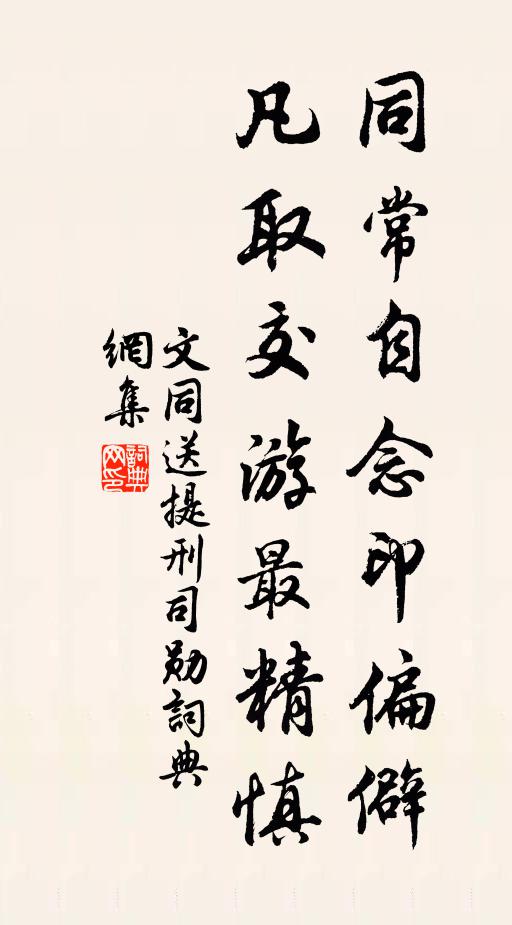 同常自念印偏僻
凡取交游最精慎
文同送提刑司勋詞典
網集
詞典
网印